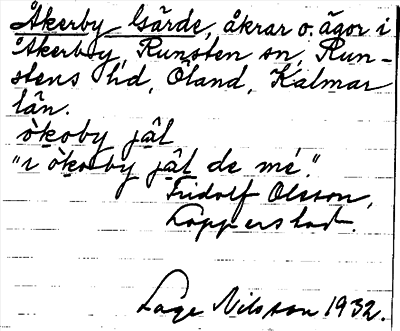 Åkerby Gärde, åkrar o. ägor i
Åkerby, Runsten sn, Run-
stens hd, Öland, Kalmar
län.
òkoby jäl
"i òkoby jäl de mé."
Fridolf Olsson,
Lopperstad.
Lage Nilsson 1932.